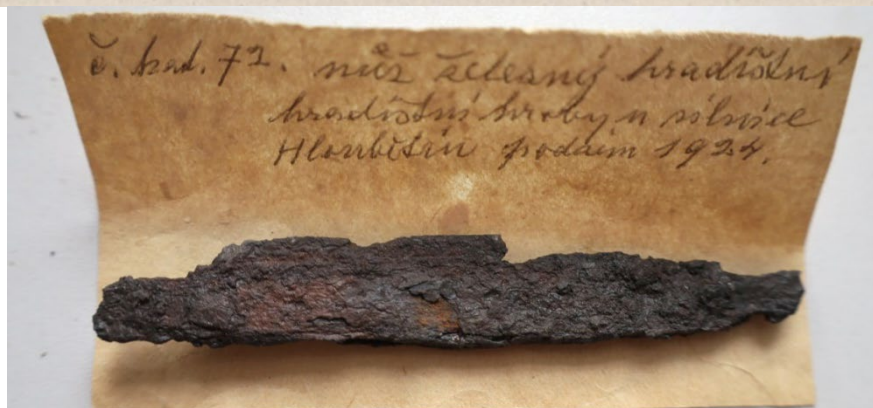 č. kat. 72. nůž železný hradištní
hradištní hroby u silnice
Hloubětín podzim 1924.